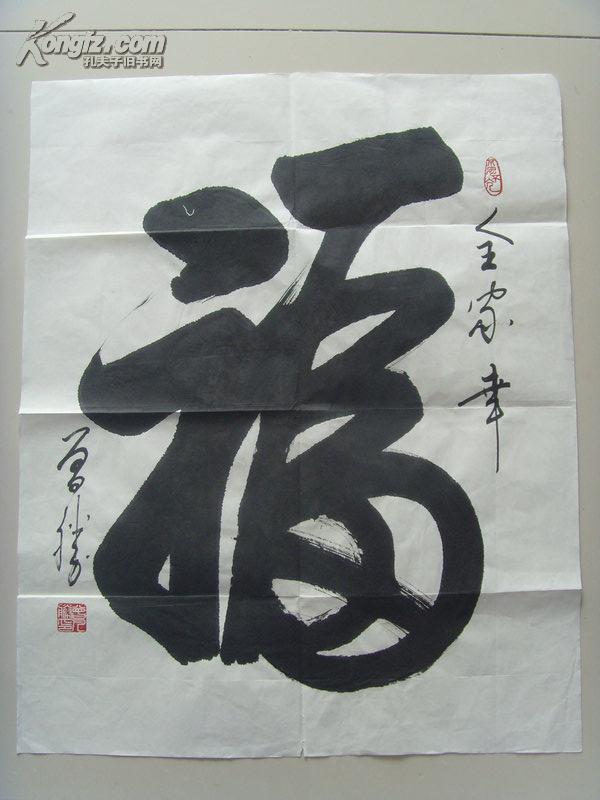 Kongfz.com
孔夫子旧书网
全家幸
福
曾胜